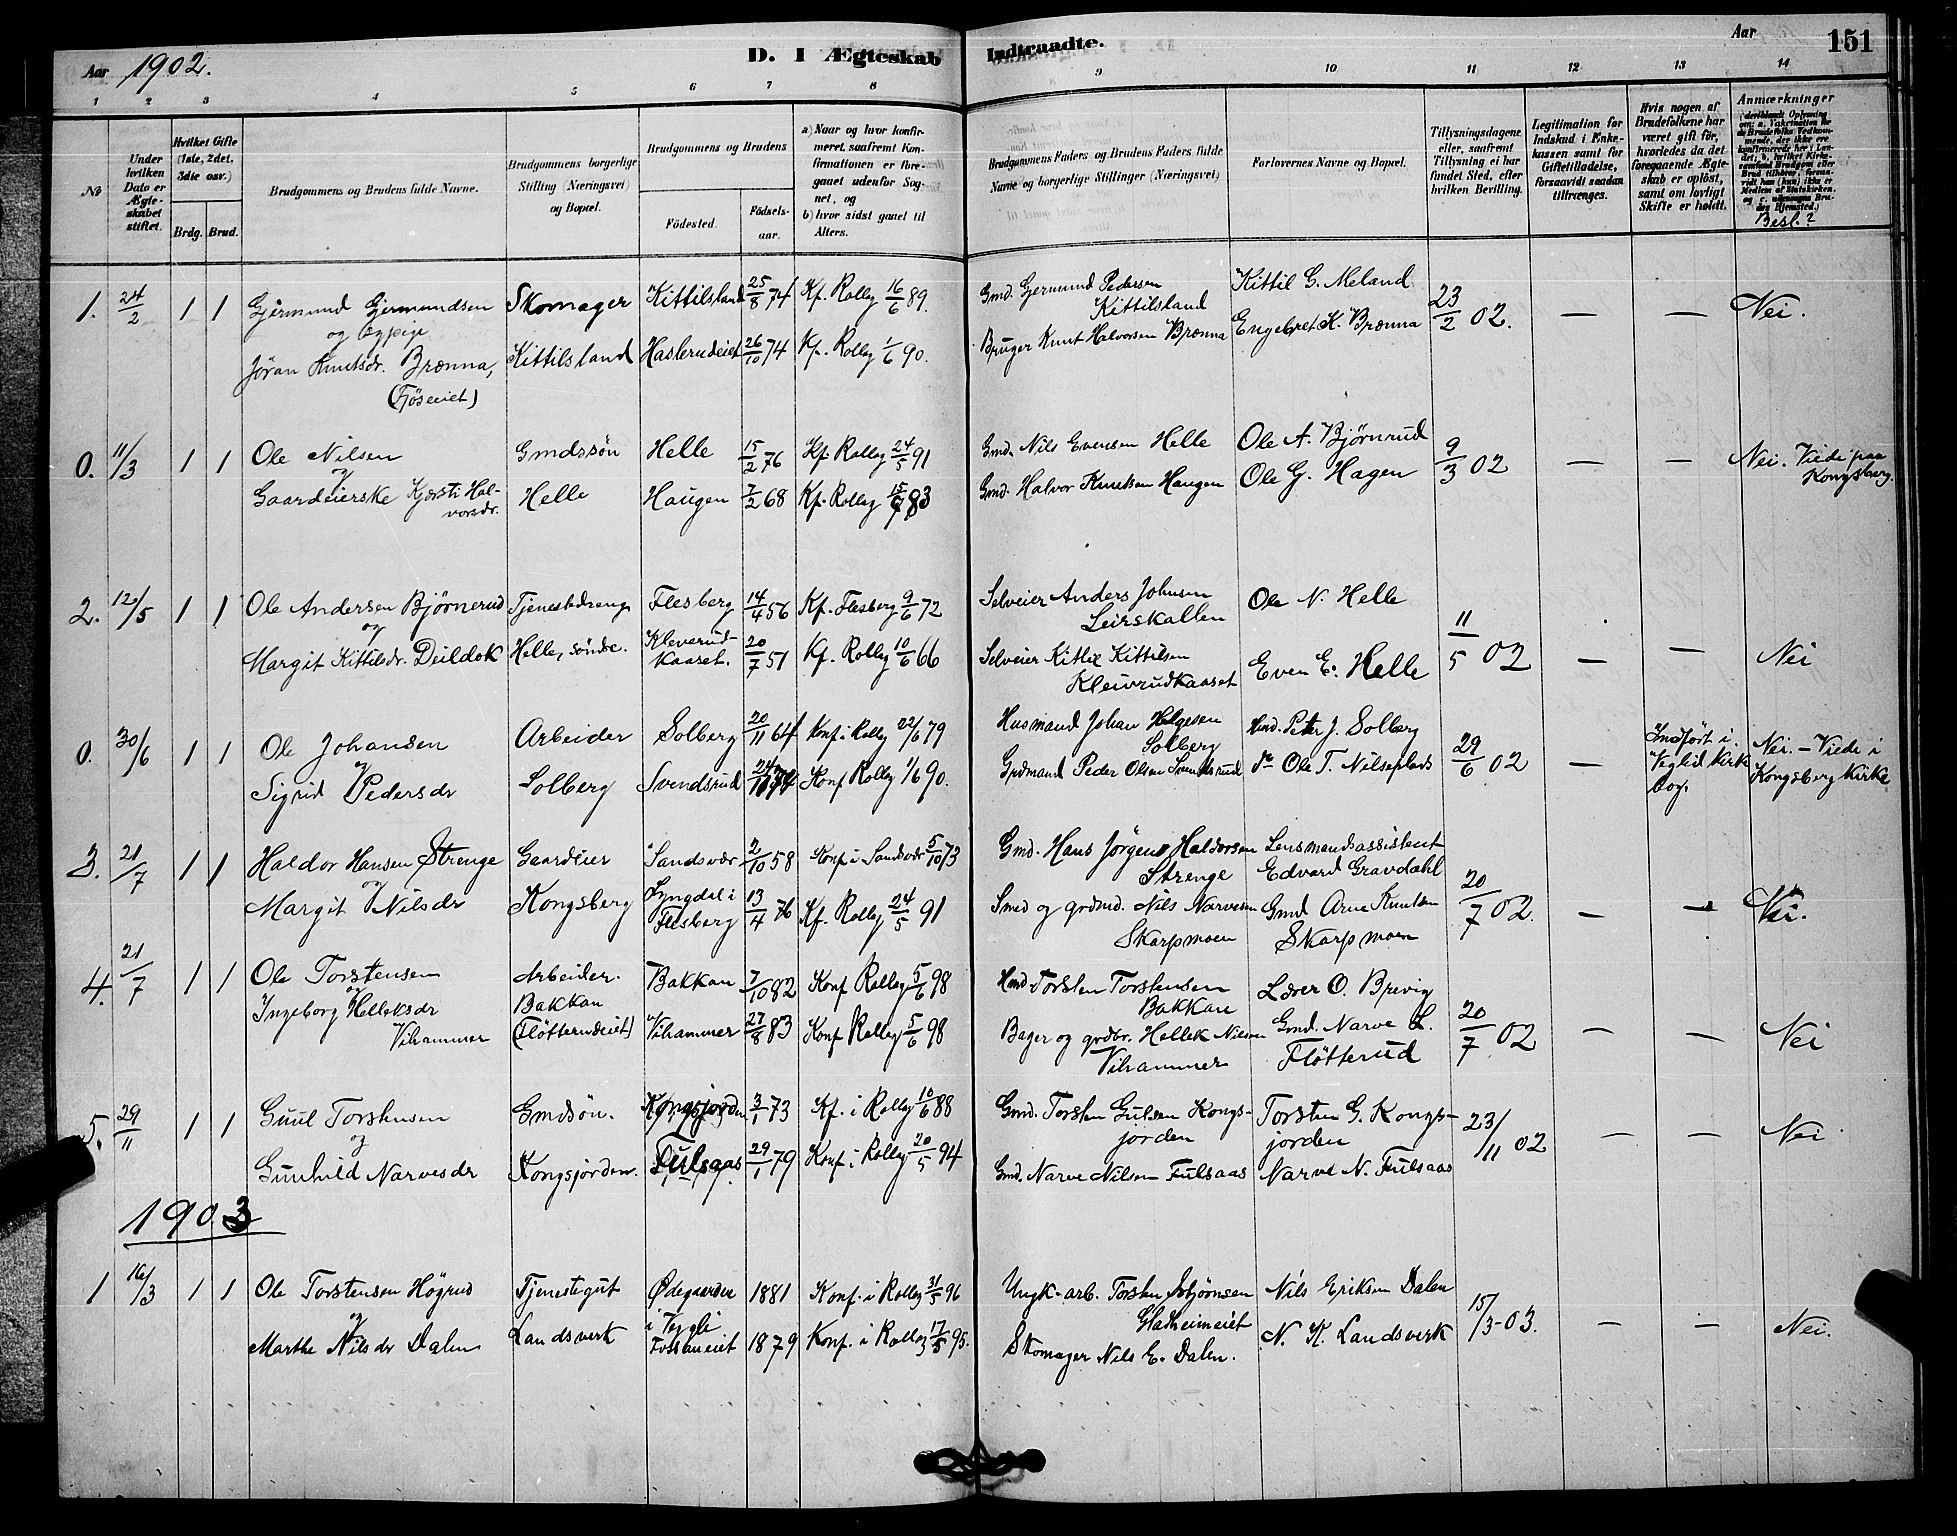 Aar 1902. D. I Ægteskab Indtraadte. Aar 151
1 2 3 4 5 6 7 8 9 10 11 12 13 14
No
Under hvilken Dato er Ægteskabet stiftet.
Hvilket Gifte (1ste, 2det, 3die osv.)
Brdg. Brud.
Brudgommens og Brudens fulde Navne.
Brudgommens borgerlige Stilling (Næringsvei) og Bopæl.
Brudgommens og Brudens
Födested. Födselsaar.
a) Naar og hvor konfirmeret, saafremt Konfirmationen er foregaaet udenfor Sognet, og
b) hvor sidst gaaet til Alters.
Brudgommens Faders og Brudens Faders fulde Navne og borgerlige Stillinger (Næringsvei)
Forlovernes Navne og Bopæl.
Tillysningsdagene eller, saafremt Tillysning ei har fundet Sted, efter hvilken Bevilling.
Legitimation for Indskud i Enkekassen samt for Giftetilladelse, forsaavidt saadan tiltrænges.
Hvis nogen af Brudefolkene har været gift för, hvorledes da det foregaaende Ægteskab er oplöst, samt om lovligt Skifte er holdt.
Anmærkninger
Besl.?
1. 24/2 1 1 Gjermund Gjermundsen Skomager Kittilsland 25/8 74 Kf. Rolleg 16/6 89. Gmd. Germund Pedersen Kittilsland Kittil G. Meland 23/2 02. — — Nei.
og
Jöran Knutsdr. Brænna, Kittilsland Haslerudeiet 26/10 74 Kf. Rolleg 1/6 90. Bruger Knut Halvorsen Brænna Engebret K. Brænna
0. 11/3 1 1 Ole Nilsen Gmdssön Helle 15/2 76 Kf. Rolleg 24/5 91 Gmd. Nils Evensen Helle Ole A. Björnrud 9/3 02 — — Nei. Viede paa Kongsberg.
og
Gaardeierske Kjersti Halvorsdr. Helle Haugen 7/2 68 Kf. Rolleg 83 Gmd. Halvor Knutsen Haugen Ole G. Hagen
2. 12/5 1 1 Ole Andersen Björnerud Tjenestedreng Flesberg 14/4 56 Kf. Flesberg 9/6 72 Selveier Anders Johnsen Leirskallen Ole N. Helle 11/5 02 — — Nei
og
Margit Kittilsdr. Deildok Helle, söndre. Kleverudkaaset. 20/7 51 Kf. Rolleg 10/6 66 Selveier Kittil Kittilsen Kleivrudkaaset Even E. Helle
0. 30/6 1 1 Ole Johansen Arbeider Solberg 20/11 64 Konf. i Rolleg 22/6 79 Husmand Johan Helgesen Solberg Hmd. Peter J. Solberg 29/6 02 — Indfört i Veglid Kirkebog. Nei. – Viede i Kongsberg Kirke
og
Sigrid Pedersdr Solberg Svendsrud Konf Rolleg 1/6 90. Grdmand Peder Olsen Svendsrud do Ole T. Nilseplads
3. 21/7 1 1 Haldor Hansen Strenge Gaardeier Sandsvær 2/10 58 Konf. i Sandsvær 5/10 73 Gmd. Hans Jörgen Haldorsen Strenge Lensmandsassistent Edvard Gravdahl 20/7 02. — — Nei.
og
Margit Nilsdr Kongsberg Lyngdal i Flesberg 13/4 76 Kf. Rolleg 24/5 91 Smed og grdmd. Nils Narvesen Skarpmoen Gmd Arne Knutsen Skarpmoen
4. 21/7 1 1 Ole Torstensen Arbeider. Bakkan 7/10 82 Konf Rolleg 5/6 98 Hmd Torsten Torstensen Bakkan Lærer O. Brevig 20/7 02 — — Nei
og
Ingeborg Helleksdr Vihammer Bakkan (Flötterudeiet) Vihammer 27/8 83 Konf Rolleg 5/6 98 Bager og grdbr. Hellek Nilsen Vihammer Gmd. Narve L. Flötterud
5. 29/11 1 1 Guul Torstensen Gmdsön. Kongsjorden 3/1 73 Kf. i Rolleg 10/6 88 Gmd. Torsten Gulsen Kongsjorden Torsten G. Kongsjorden 23/11 02 — — Nei
og
Gunhild Narvesdr Kongsjorden. Fulsaas 29/1 79 Konf. i Rolleg 20/5 94 Gmd. Narve Nilsen Fulsaas Narve N. Fulsaas
1903
1 16/3 1 1 Ole Torstensen Högrud Tjenestegut Ødegaarden 1881 Konf. i Rolleg 31/5 96 Ungk.-arb. Torsten Gladheimeiet Nils Eriksen Dalen 15/3-03. — — Nei.
og
Marthe Nilsdr Dalen Landsverk 1879 Konf. i Rolleg 95. Skomager Nils E. Dalen. N. K. Landsverk